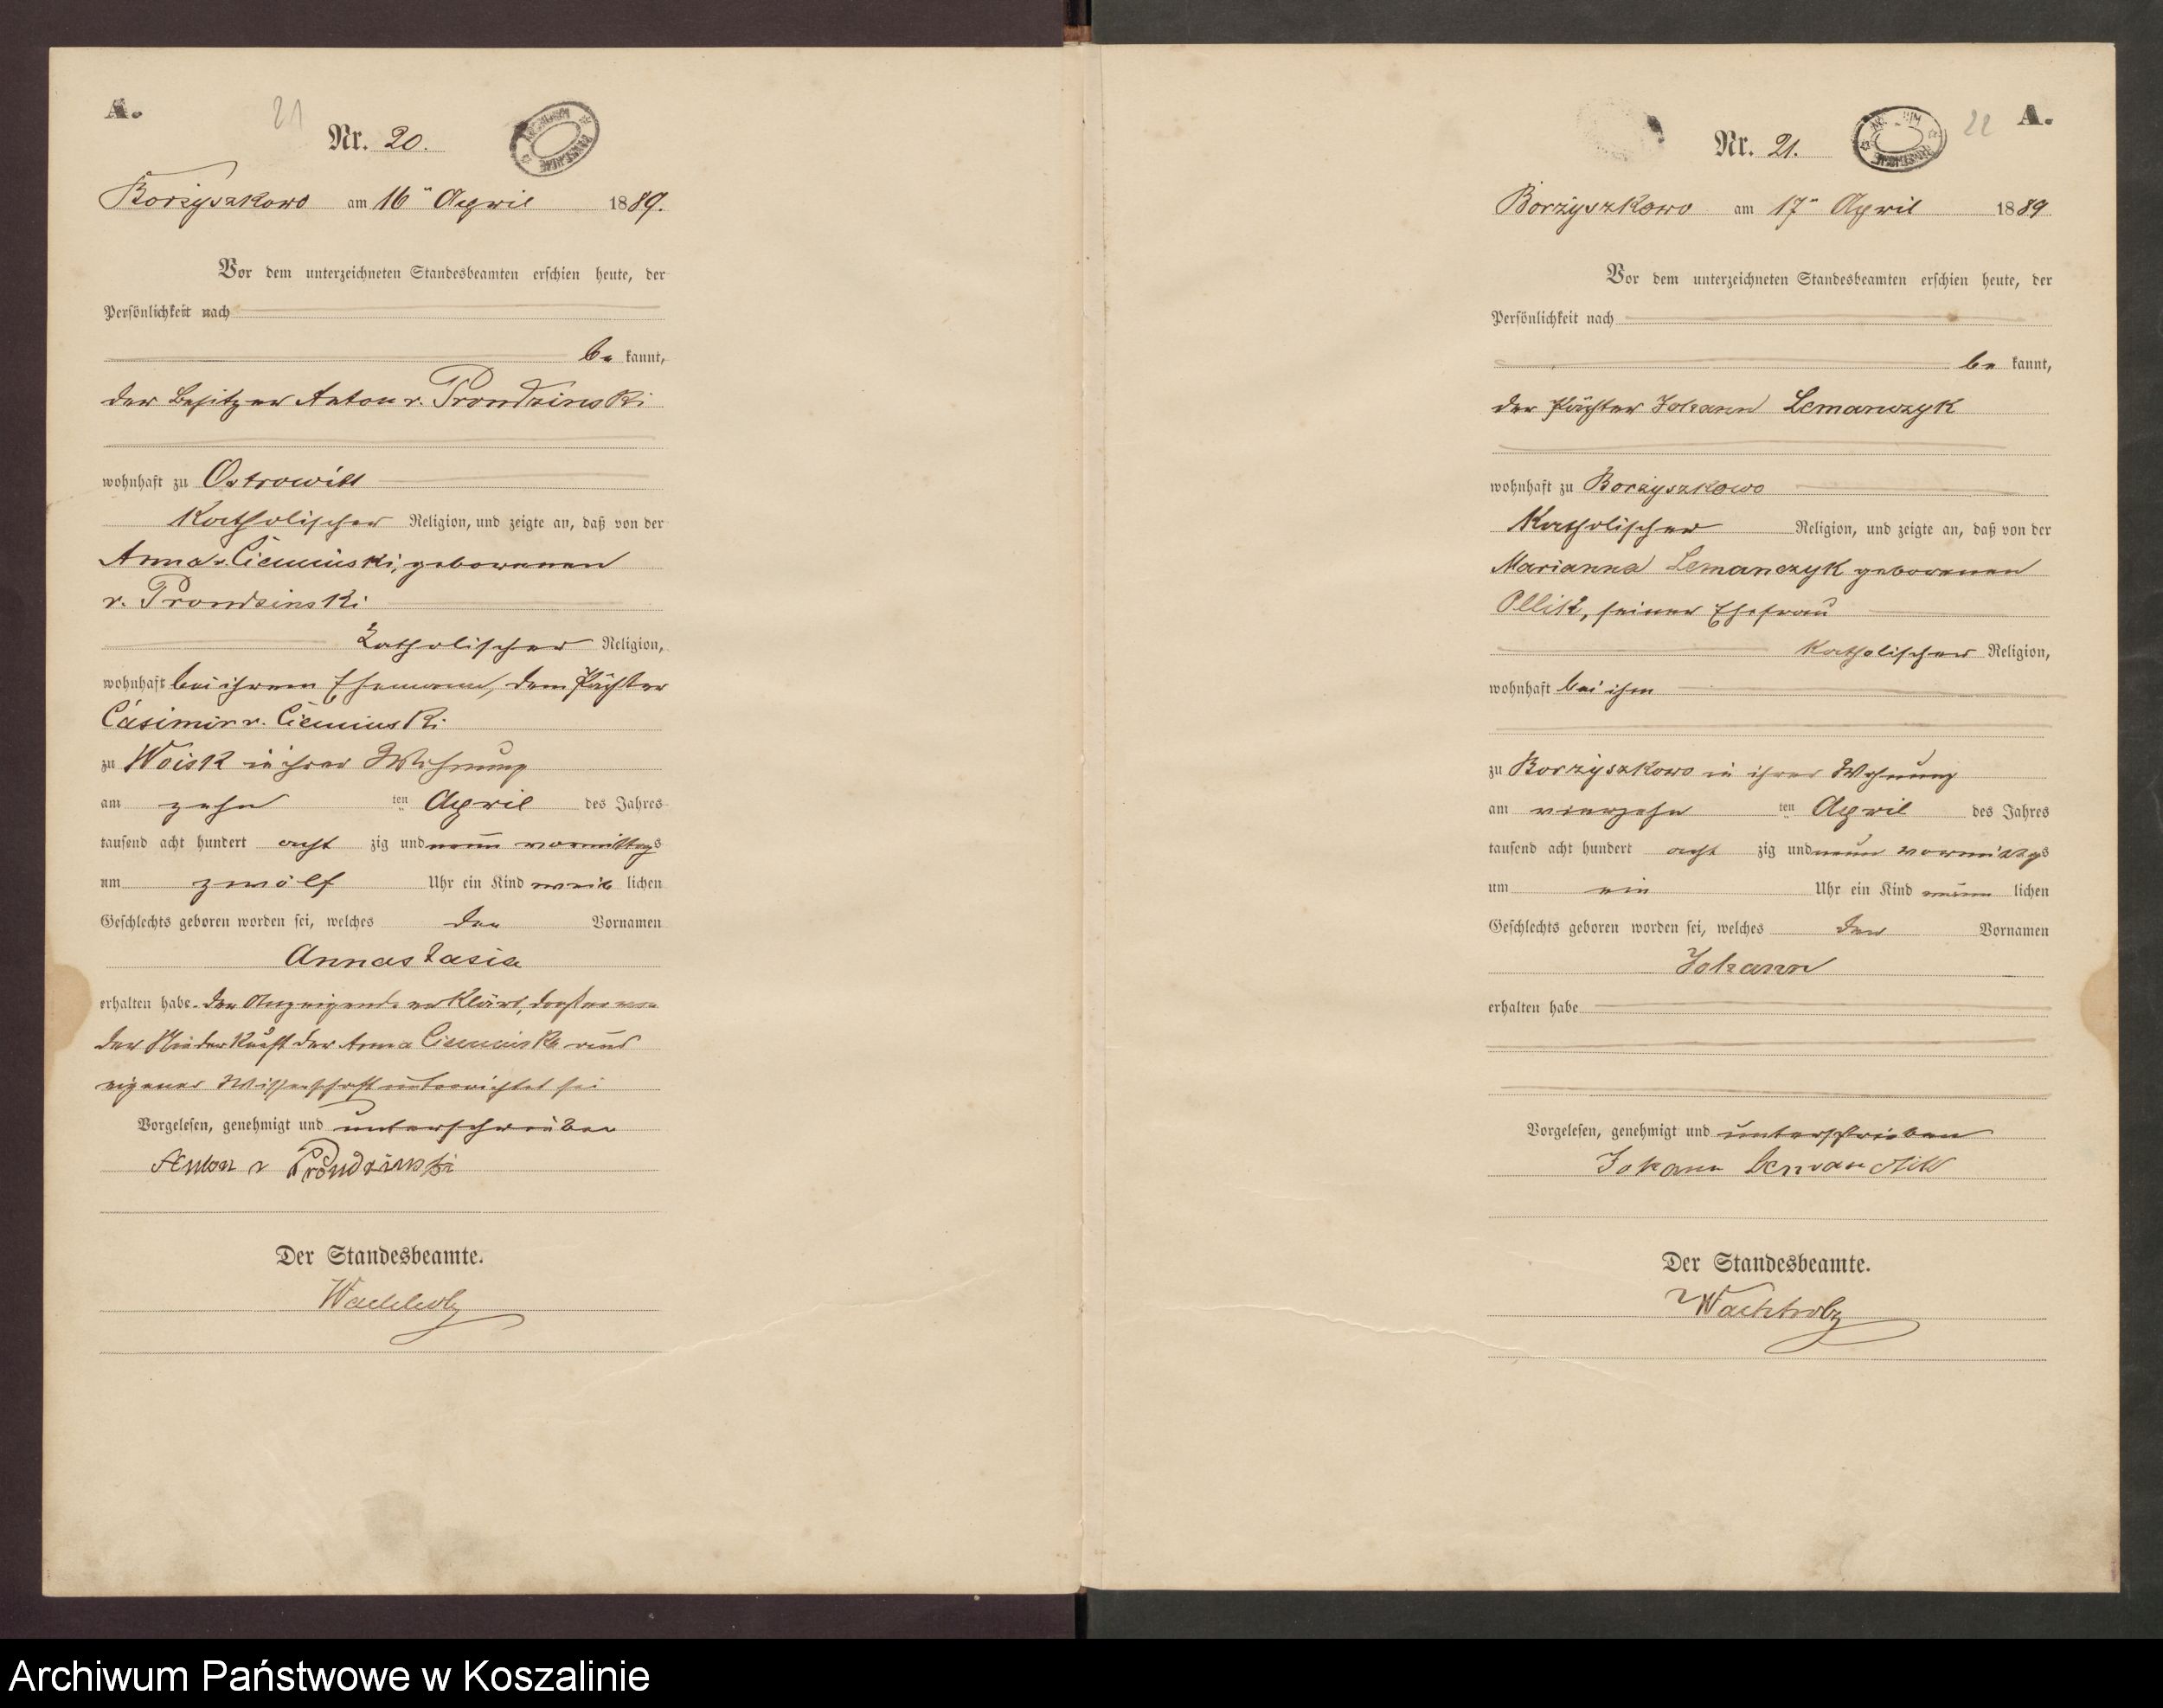 A.
21
Nr. 20.
Borzyszkowo am 16ten April 1889.
Vor dem unterzeichneten Standesbeamten erschien heute, der
Persönlichkeit nach
be kannt,
der Besitzer Anton v. Prondzinski
wohnhaft zu Ostrowitt
Katholischer Religion, und zeigte an, daß von der
Anna v. Cieminski, geborenen
v. Prondzinski
Katholischer Religion,
wohnhaft bei ihrem Ehemann, dem Pächter
Casimir v. Cieminski
zu Woisk in ihrer Wohnung
am zehn ten April des Jahres
tausend acht hundert acht zig und neun vormittags
um zwölf Uhr ein Kind weib lichen
Geschlechts geboren worden sei, welches den Vornamen
Annastasia
erhalten habe. Der Anzeigende erklärt, daß er von
der Niederkunft der Anna Cieminski aus
eigener Wissenschaft unterrichtet sei
Vorgelesen, genehmigt und unterschrieben
Anton v Prondzinski
Der Standesbeamte.
Wachholz
22
A.
Nr. 21.
Borzyszkowo am 17ten April 1889
Vor dem unterzeichneten Standesbeamten erschien heute, der
Persönlichkeit nach
be kannt,
der Pächter Johann Lemanczyk
wohnhaft zu Borzyszkowo
Katholischer Religion, und zeigte an, daß von der
Marianna Lemanczyk geborenen
Ollik, seiner Ehefrau
Katholischer Religion,
wohnhaft bei ihm
zu Borzyszkowo in ihrer Wohnung
am vierzehn ten April des Jahres
tausend acht hundert acht zig und neun vormittags
um ein Uhr ein Kind männ lichen
Geschlechts geboren worden sei, welches den Vornamen
Johann
erhalten habe
Vorgelesen, genehmigt und unterschrieben
Johann
Der Standesbeamte.
Wachholz
Archiwum Państwowe w Koszalinie